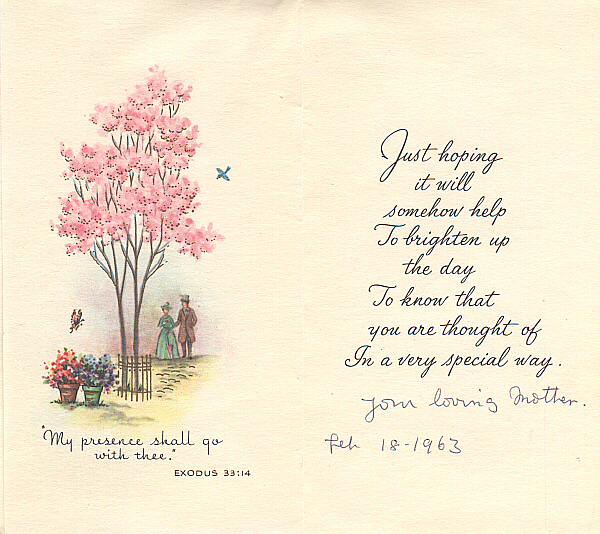 "My presence shall go
with thee."
EXODUS 33:14
Just hoping
it will
somehow help
To brighten up
the day
To know that
you are thought of
In a very special way.
your loving Mother.
Feb 18-1963